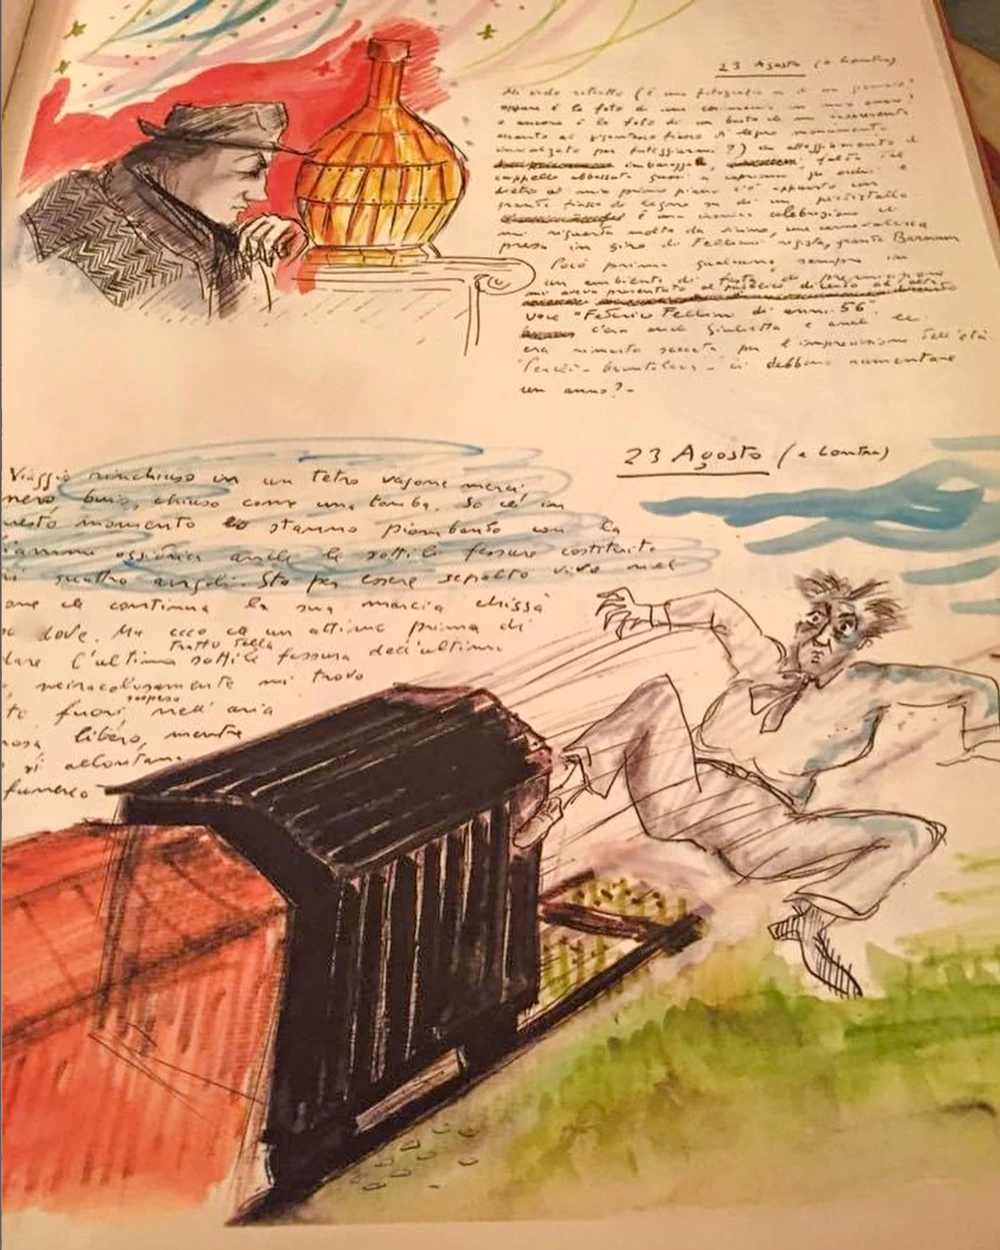 23 Agosto (a Londra)
Mi vedo ritratto (è una fotografia o di un
oppure è la foto di una cerimonia in mio onore?
e ancora è la foto di un busto di me
accanto al gigantesco fiasco di legno monumento
innalzato per festeggiarmi?) in atteggiamento
imbarazzo falda del
cappello abbassata quasi a coprirmi gli occhi e
dietro al mio primo piano c'è appunto un
grande fiasco di legno su di un piedistallo
è una ironica celebrazione al
mio riguardo molto da vicino, una carnevalesca
presa in giro di Fellini regista, grande Barnum
Poco prima qualcuno sempre in
un ambiente di festa, di premiazione
mi aveva presentato al pubblico dicendo ad alta
voce "Federico Fellini di anni 56"
c'era anche Giulietta e anche lei
era rimasta seccata per l'imprecisione dell'età
"Perché - brontolava - ci debbono aumentare
un anno? -
23 Agosto (a Londra)
Viaggio rinchiuso in un tetro vagone merci
nero buio, chiuso come una tomba. So ch'in
questo momento lo stanno piombando con la
fiamma ossidrica anche le sottili fessure costituite
quattro angoli. Sto per essere sepolto vivo nel
che continua la sua marcia chissà
dove. Ma ecco che un attimo prima di
tratto della
l'ultima sottile fessura dell'ultimo
miracolosamente mi trovo
sospeso
fuori nell'aria
libero, mentre
si allontana
funereo